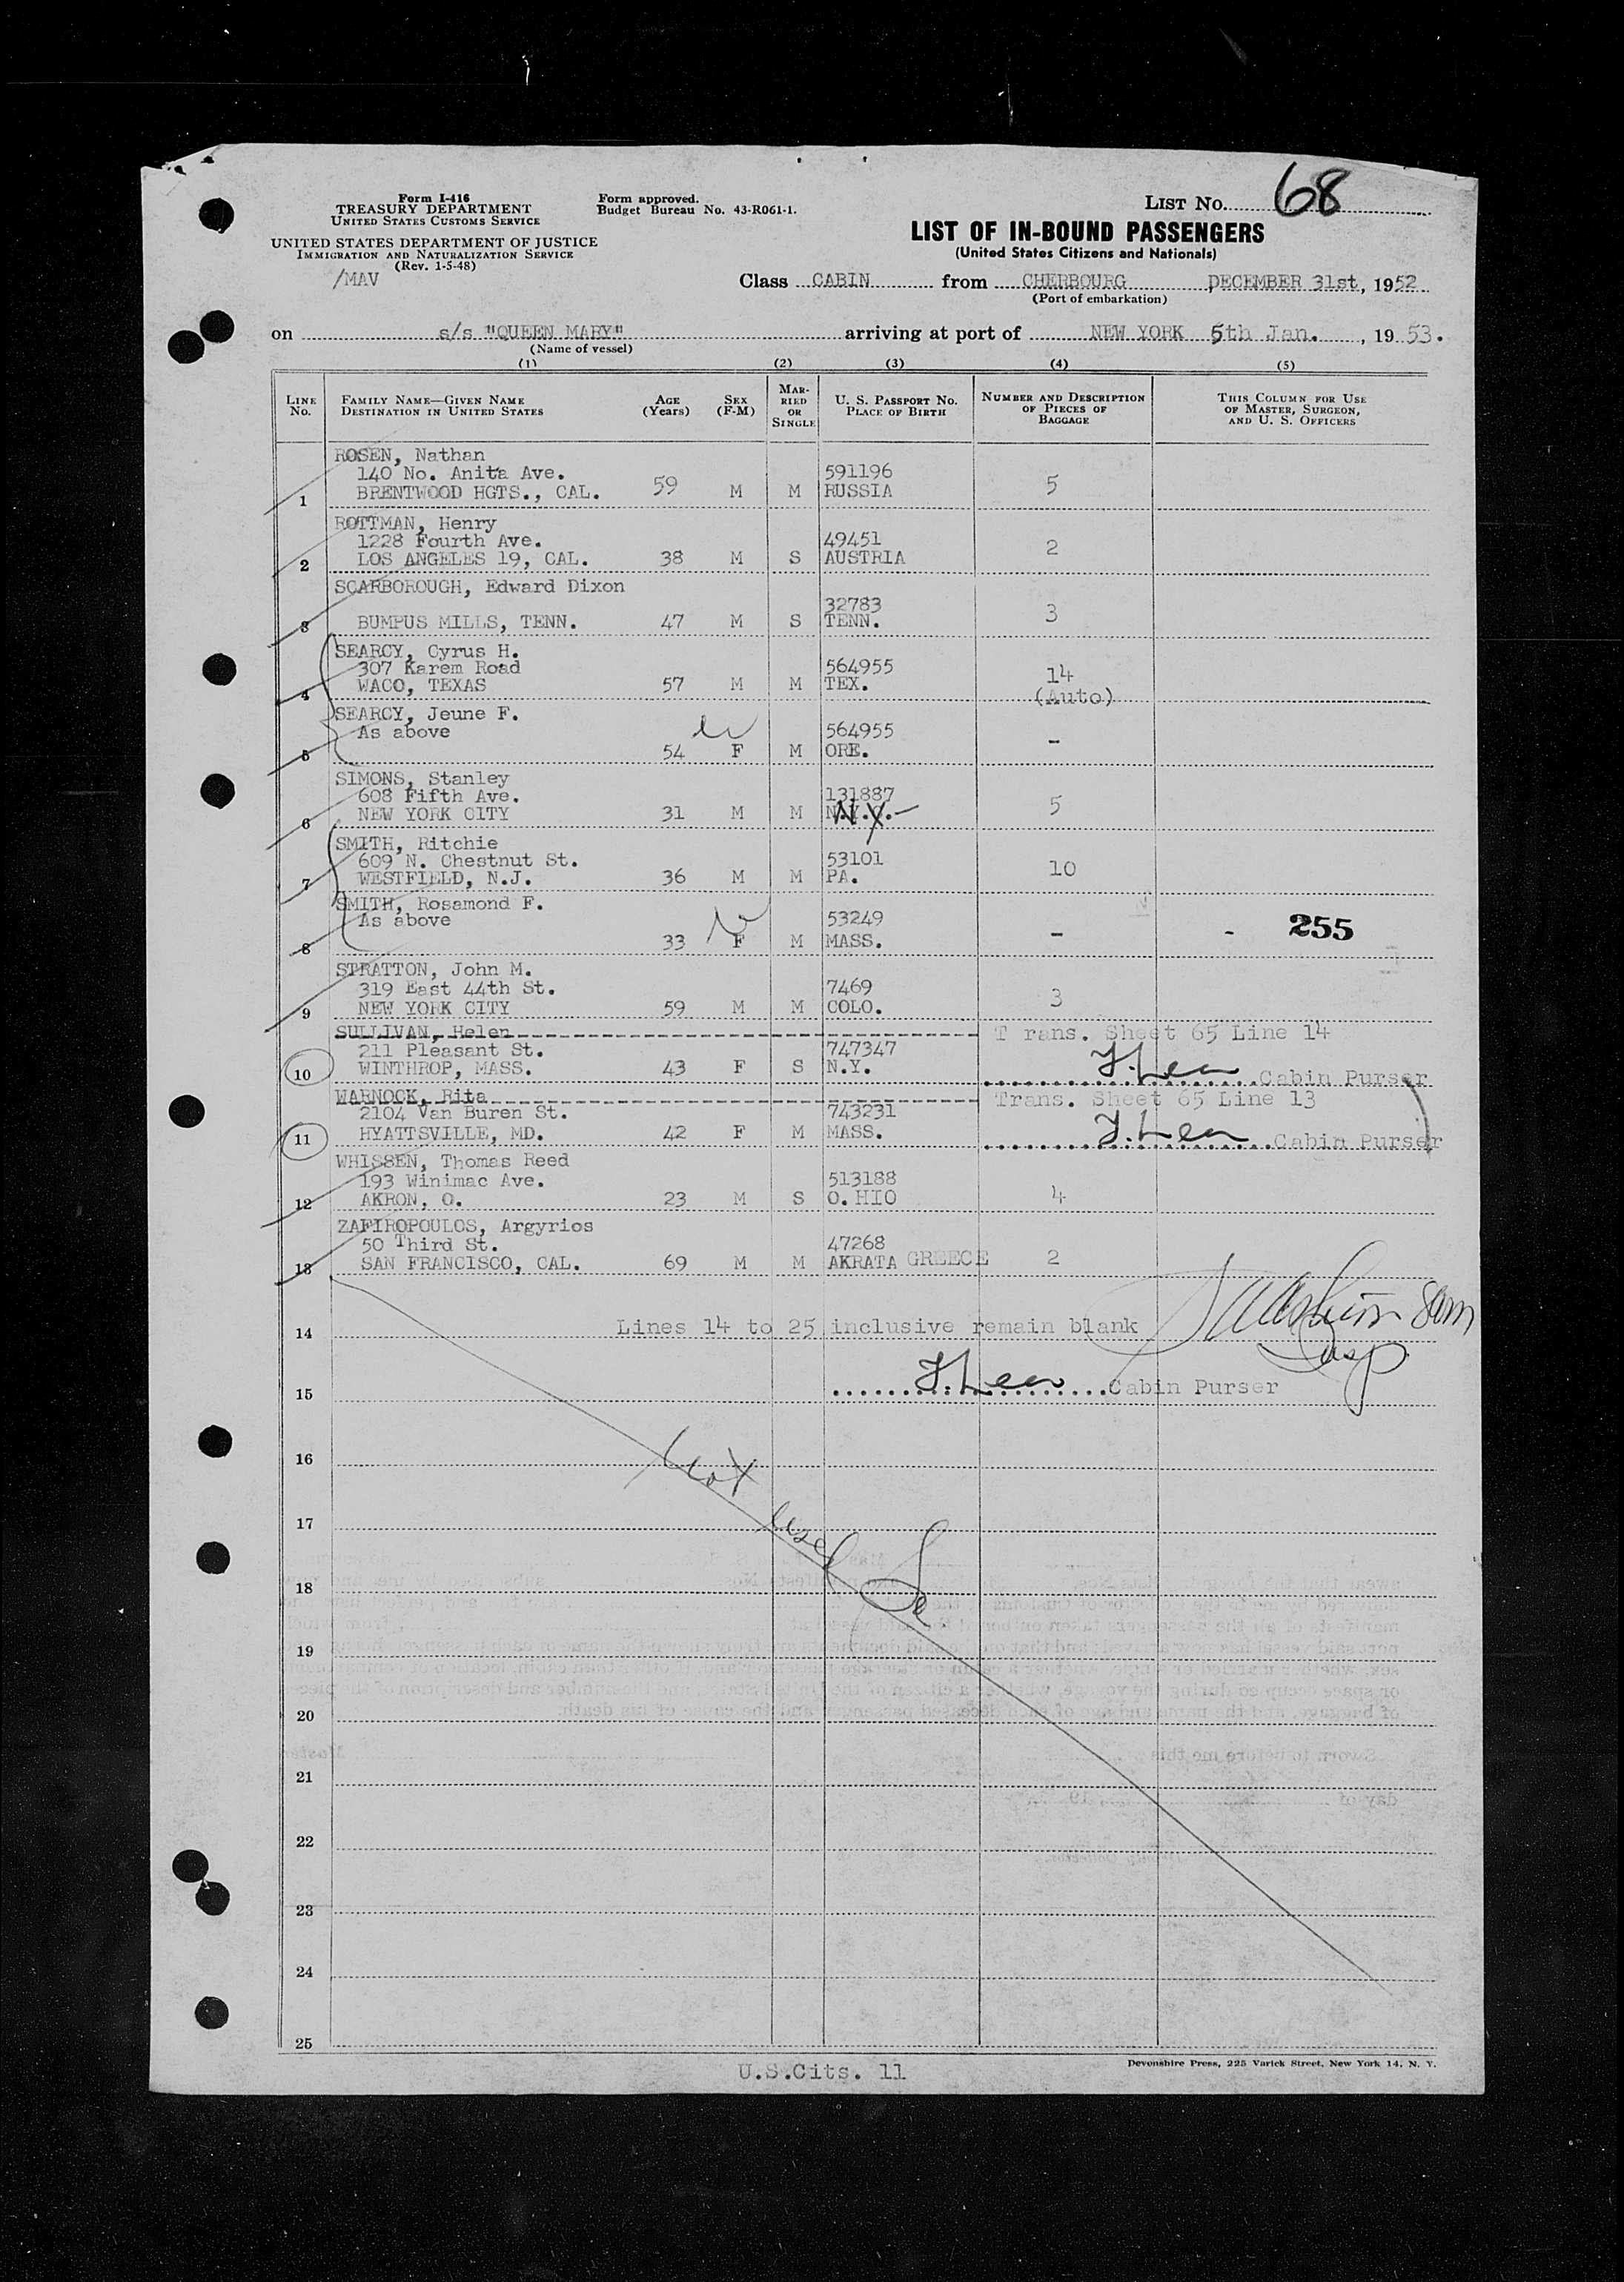 Form I-416
TREASURY DEPARTMENT
UNITED STATES CUSTOMS SERVICE
UNITED STATES DEPARTMENT OF JUSTICE
IMMIGRATION AND NATURALIZATION SERVICE
(Rev. 1-5-48)
/MAV
Form approved.
Budget Bureau No. 43-R061-1.
LIST NO. 68
LIST OF IN-BOUND PASSENGERS
(United States Citizens and Nationals)
Class CABIN from CHERBOURG DECEMBER 31st, 1952
(Port of embarkation)
on s/s "QUEEN MARY" arriving at port of NEW YORK 5th Jan., 1953.
(Name of vessel)
(1) (2) (3) (4) (5)
LINE No. FAMILY NAME—GIVEN NAME DESTINATION IN UNITED STATES AGE (Years) SEX (F-M) MARRIED OR SINGLE U. S. PASSPORT NO. PLACE OF BIRTH NUMBER AND DESCRIPTION OF PIECES OF BAGGAGE THIS COLUMN FOR USE OF MASTER, SURGEON, AND U. S. OFFICERS
ROSEN, Nathan
140 No. Anita Ave. 591196
1 BRENTWOOD HGTS., CAL. 59 M M RUSSIA 5
ROTTMAN, Henry
1228 Fourth Ave. 49451
2 LOS ANGELES 19, CAL. 38 M S AUSTRIA 2
SCARBOROUGH, Edward Dixon
32783
3 BUMPUS MILLS, TENN. 47 M S TENN. 3
SEARCY, Cyrus H.
307 Karem Road 564955
4 WACO, TEXAS 57 M M TEX. 14
(Auto)
SEARCY, Jeune F.
As above 564955
5 54 F M ORE. -
SIMONS, Stanley
608 Fifth Ave. 131887
6 NEW YORK CITY 31 M M N.Y. 5
SMITH, Ritchie
609 N. Chestnut St. 53101
7 WESTFIELD, N.J. 36 M M PA. 10
SMITH, Rosamond F.
As above 53249
8 33 F M MASS. - - 255
STRATTON, John M.
319 East 44th St. 7469
9 NEW YORK CITY 59 M M COLO. 3
SULLIVAN, Helen T rans. Sheet 65 Line 14
211 Pleasant St. 747347
10 WINTHROP, MASS. 43 F S N.Y. J. Lea Cabin Purser
WARNOCK, Rita Trans. Sheet 65 Line 13
2104 Van Buren St. 743231
11 HYATTSVILLE, MD. 42 F M MASS. J. Lea Cabin Purser
WHISSEN, Thomas Reed
193 Winimac Ave. 513188
12 AKRON, O. 23 M S O.HIO 4
ZAFIROPOULOS, Argyrios
50 Third St. 47268
13 SAN FRANCISCO, CAL. 69 M M AKRATA GREECE 2
14 Lines 14 to 25 inclusive remain blank
Insp
15 J. Lea Cabin Purser
16 Not
17 used
18
19
20
21
22
23
24
25
U.S.Cits. 11
Devonshire Press, 225 Varick Street, New York 14, N. Y.